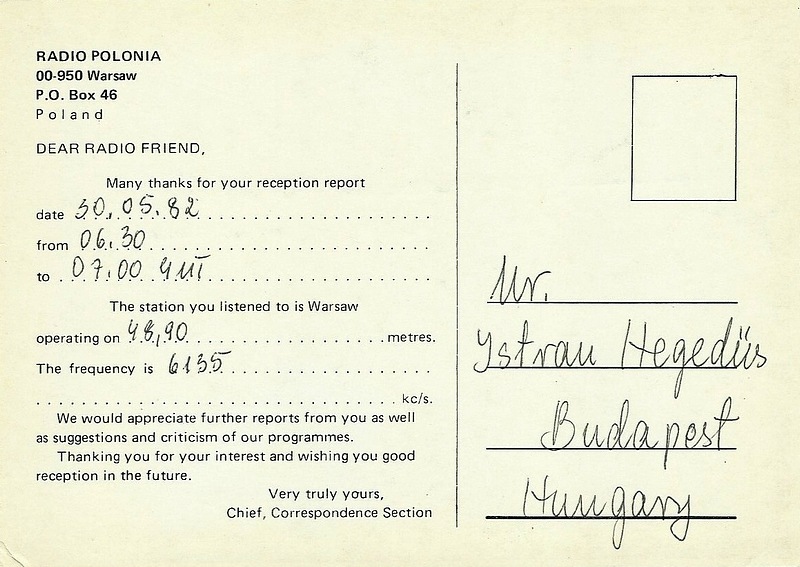 RADIO POLONIA
00-950 Warsaw
P.O. Box 46
Poland
DEAR RADIO FRIEND,
Many thanks for your reception report
date 30.05.82
from 06.30
to 07.00 GMT
The station you listened to is Warsaw
operating on 48,90 metres.
The frequency is 6135
kc/s.
We would appreciate further reports from you as well
as suggestions and criticism of our programmes.
Thanking you for your interest and wishing you good
reception in the future.
Very truly yours,
Chief, Correspondence Section
Mr.
Istvan Hegedüs
Budapest
Hungary